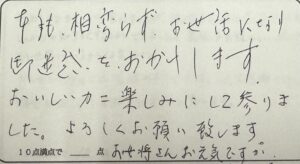 本年も 相変らず お世話になり
御迷惑をおかけします
おいしいカニ楽しみにして参りま
した。よろしくお願い致します
10点満点で 点 お世将さんお元気ですか